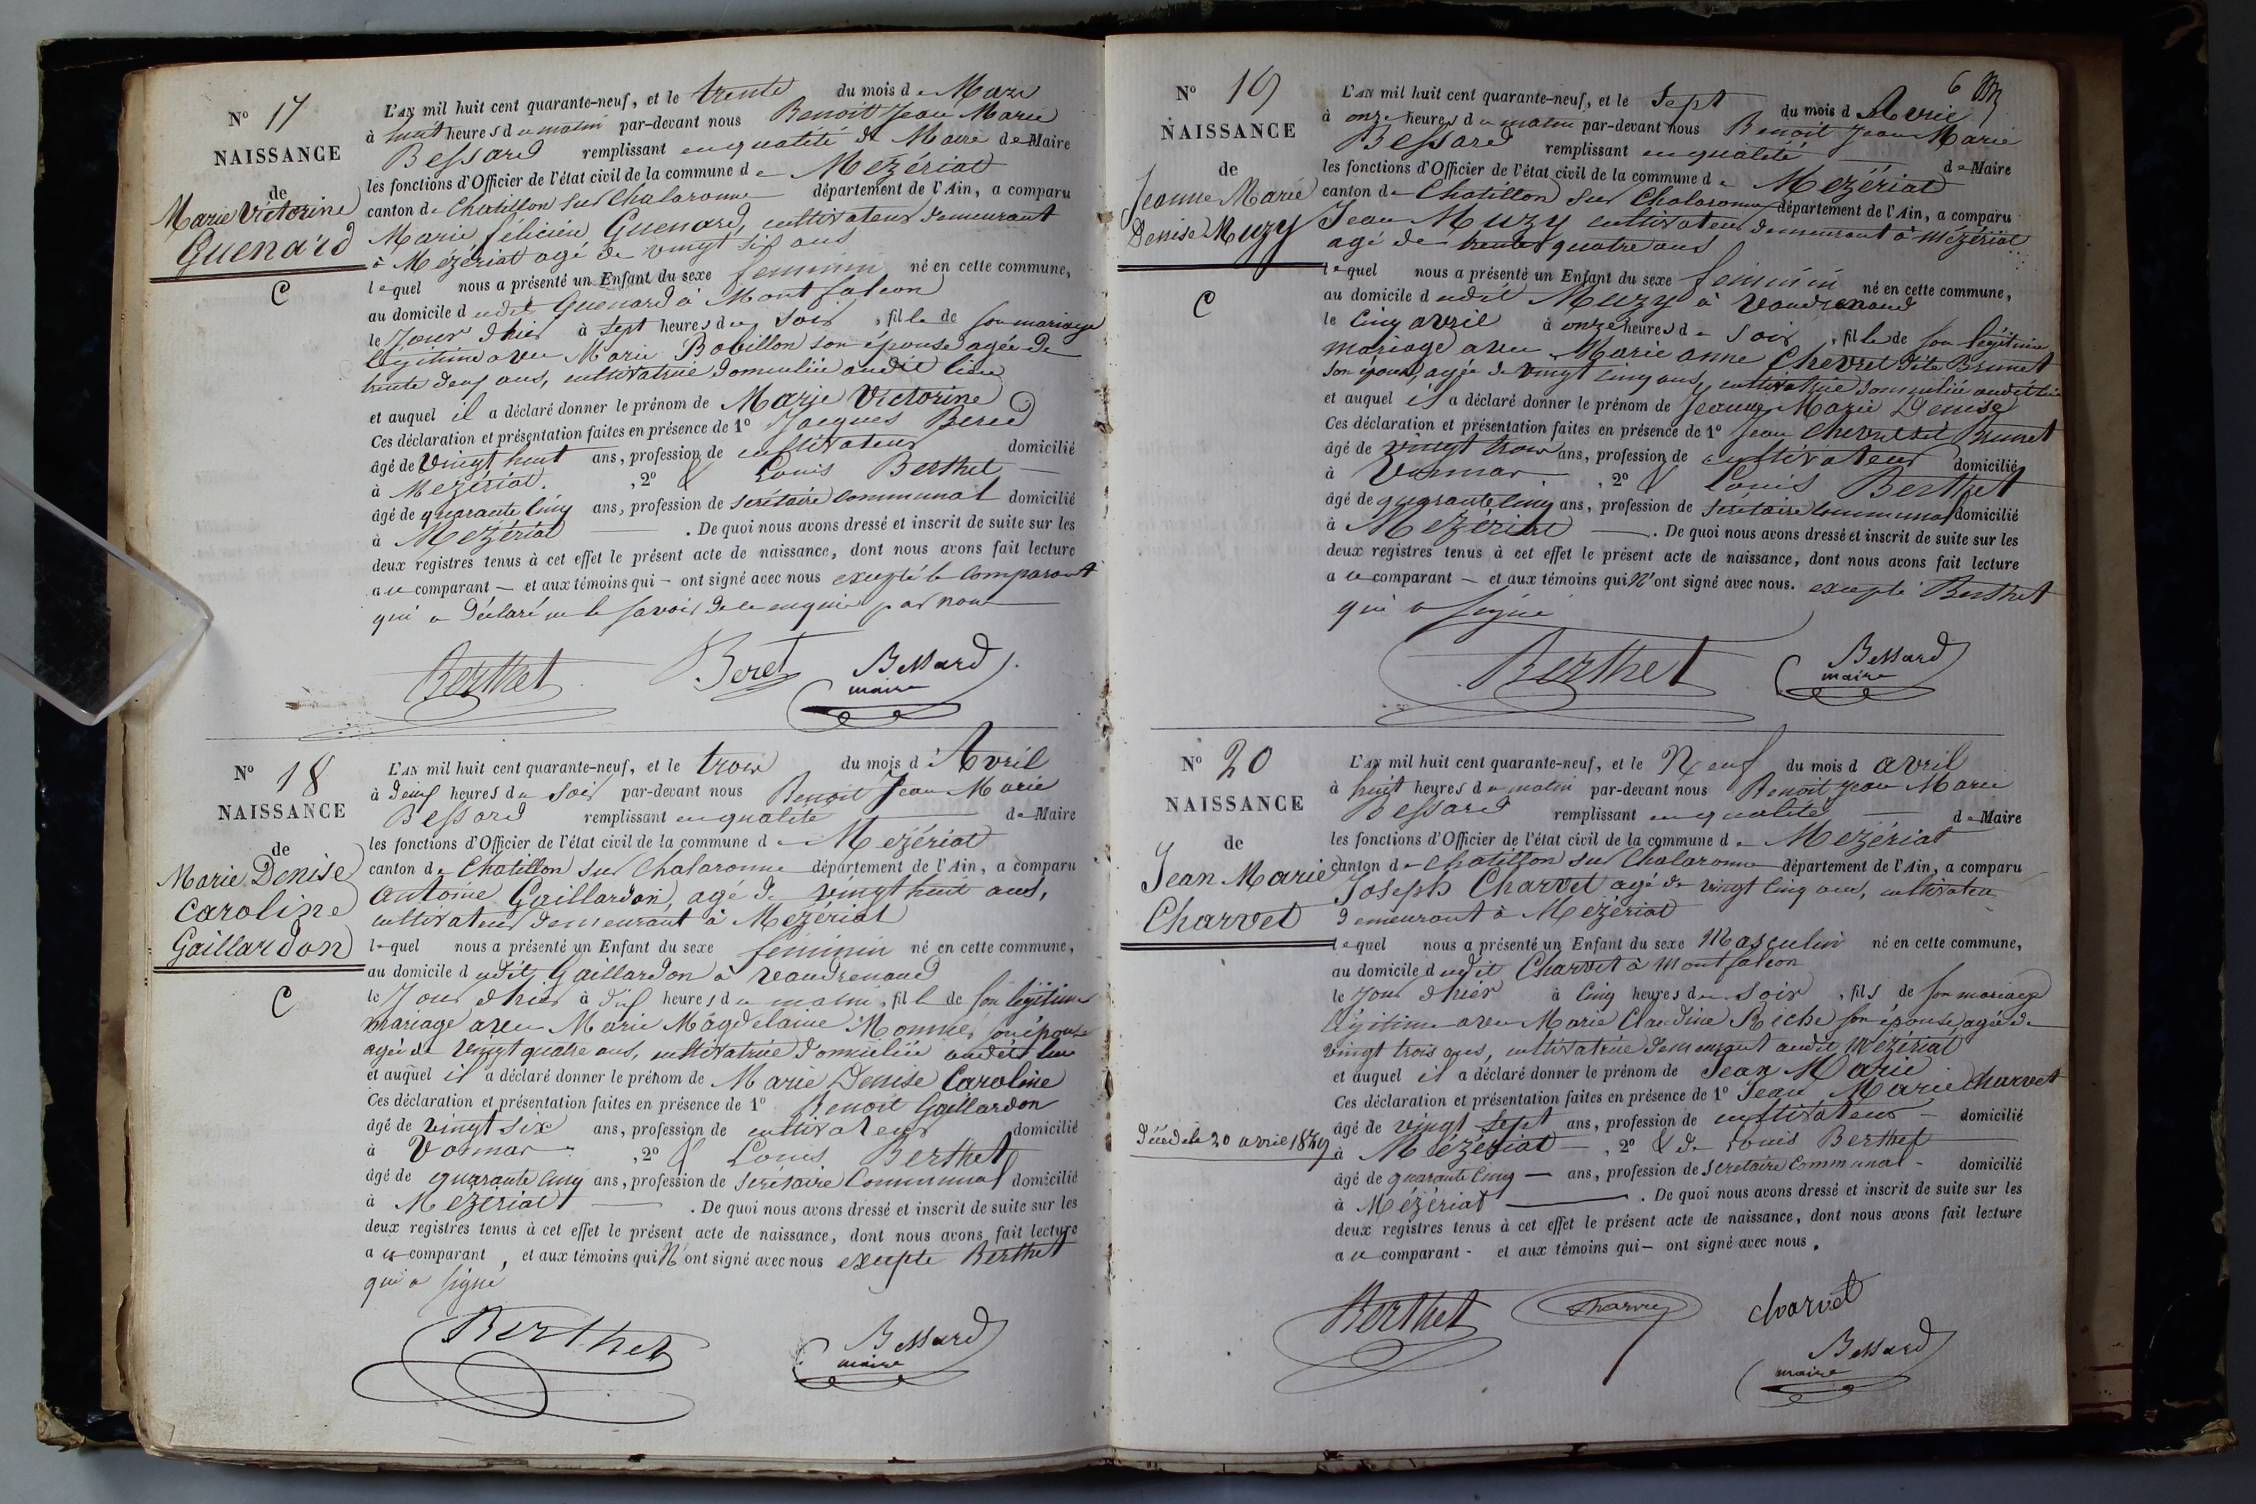 N° 17
NAISSANCE
de
Marie Victorine
Guenard
C
L'AN mil huit cent quarante-neuf, et le trente du mois de Mars
à huit heures du matin par-devant nous Benoit Jean Marie
Bessard remplissant en qualité de Maire de Maire
les fonctions d'Officier de l'état civil de la commune de Mezériat
canton de Chatillon sur Chalaronne département de l'Ain, a comparu
Marie felicien Guenard, cultivateur demeurant
à Mezériat agé de vingt six ans
lequel nous a présenté un Enfant du sexe feminin né en cette commune,
au domicile dudit Guenard à Montfalcon
le Jour d'hier à sept heures du soir, fille de son mariage
légitime avec Marie Bobillon son épouse agée de
trente deux ans, cultivatrice domiciliée audit lieu
et auquel il a déclaré donner le prénom de Marie Victorine
Ces déclaration et présentation faites en présence de 1° Jacques Beret
âgé de vingt huit ans, profession de cultivateur domicilié
à Mezériat. , 2° & Louis Berthet
âgé de quarante cinq ans, profession de secrétaire communal domicilié
à Mezériat . De quoi nous avons dressé et inscrit de suite sur les
deux registres tenus à cet effet le présent acte de naissance, dont nous avons fait lecture
au comparant — et aux témoins qui — ont signé avec nous excepté le comparant
qui a déclaré ne le savoir de ce enquis par nous
Berthet Beret Bessard
maire
N° 18
NAISSANCE
de
Marie Denise
Caroline
Gaillardon
C
L'AN mil huit cent quarante-neuf, et le trois du mois d'Avril
à deux heures du soir par-devant nous Benoit Jean Marie
Bessard remplissant en qualité de Maire
les fonctions d'Officier de l'état civil de la commune de Mezériat
canton de Chatillon sur Chalaronne département de l'Ain, a comparu
Antoine Gaillardon, agé de vingt huit ans,
cultivateur demeurant à Mezériat
lequel nous a présenté un Enfant du sexe feminin né en cette commune,
au domicile dudit Gaillardon à Vaudrenaud
le Jour d'hier à dix heures du matin, fille de son légitime
mariage avec Marie Magdelaine Monnier son épouse
agée de vingt quatre ans, cultivatrice domiciliée audit lieu
et auquel il a déclaré donner le prénom de Marie Denise Caroline
Ces déclaration et présentation faites en présence de 1° Benoit Gaillardon
âgé de vingt six ans, profession de cultivateur domicilié
à Vonnas , 2° & Louis Berthet
âgé de quarante cinq ans, profession de secrétaire communal domicilié
à Mezériat . De quoi nous avons dressé et inscrit de suite sur les
deux registres tenus à cet effet le présent acte de naissance, dont nous avons fait lecture
au comparant, et aux témoins qui N'ont signé avec nous excepté Berthet
qui a signé
Berthet Bessard
maire
6
N° 19
NAISSANCE
de
Jeanne Marie
Denise Muzy
C
L'AN mil huit cent quarante-neuf, et le sept du mois d'Avril
à onze heures du matin par-devant nous Benoit Jean Marie
Bessard remplissant en qualité de Maire
les fonctions d'Officier de l'état civil de la commune de Mezériat
canton de Chatillon sur Chalaronne département de l'Ain, a comparu
Jean Muzy cultivateur demeurant à Mézériat
agé de trente quatre ans
lequel nous a présenté un Enfant du sexe feminin né en cette commune,
au domicile dudit Muzy à Vaudrenaud
le cinq avril à onze heures du soir, fille de son légitime
mariage avec Marie anne Chevret dite Brunet
son épouse, agée de vingt cinq ans, cultivatrice domiciliée audit lieu
et auquel il a déclaré donner le prénom de Jeanne Marie Denise
Ces déclaration et présentation faites en présence de 1° Jean Chevret dit Brunet
âgé de vingt trois ans, profession de cultivateur domicilié
à Vonnas , 2° & Louis Berthet
âgé de quarante cinq ans, profession de secrétaire communal domicilié
à Mezériat . De quoi nous avons dressé et inscrit de suite sur les
deux registres tenus à cet effet le présent acte de naissance, dont nous avons fait lecture
au comparant — et aux témoins qui N'ont signé avec nous. excepté Berthet
qui a signé
Berthet Bessard
maire
N° 20
NAISSANCE
de
Jean Marie
Charvet
L'AN mil huit cent quarante-neuf, et le Neuf du mois d avril
à huit heures du matin par-devant nous Benoit Jean Marie
Bessard remplissant en qualité de Maire
les fonctions d'Officier de l'état civil de la commune de Mezériat
canton de Chatillon sur Chalaronne département de l'Ain, a comparu
Joseph Charvet agé de vingt cinq ans, cultivateur
demeurant à Mezériat
lequel nous a présenté un Enfant du sexe Masculin né en cette commune,
au domicile dudit Charvet à Montfalcon
le Jour d'hier à cinq heures du soir, fils de son mariage
légitime avec Marie Claudine Riche son épouse, agée de
vingt trois ans, cultivatrice demeurant audit Mézériat
et auquel il a déclaré donner le prénom de Jean Marie
Ces déclaration et présentation faites en présence de 1° Jean Marie Charvet
âgé de vingt sept ans, profession de cultivateur domicilié
décédé le 20 avril 1849
à Mézériat , 2° & de Louis Berthet
âgé de quarante cinq — ans, profession de secretaire communal domicilié
à Mézériat . De quoi nous avons dressé et inscrit de suite sur les
deux registres tenus à cet effet le présent acte de naissance, dont nous avons fait lecture
au comparant - et aux témoins qui — ont signé avec nous.
Berthet Charvet charvet
Bessard
maire